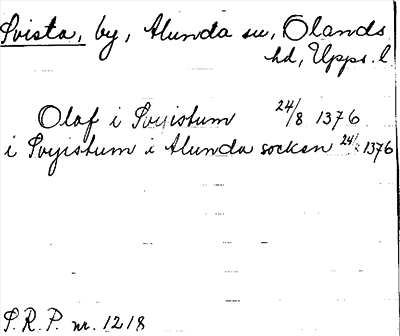 Svista, by, Alunda sn, Olands
hd, Upps. l
Olaf i Svyistum 24/8 1376
i Svyistum i Alunda socken 24/8 1376
S. R. P. nr. 1218